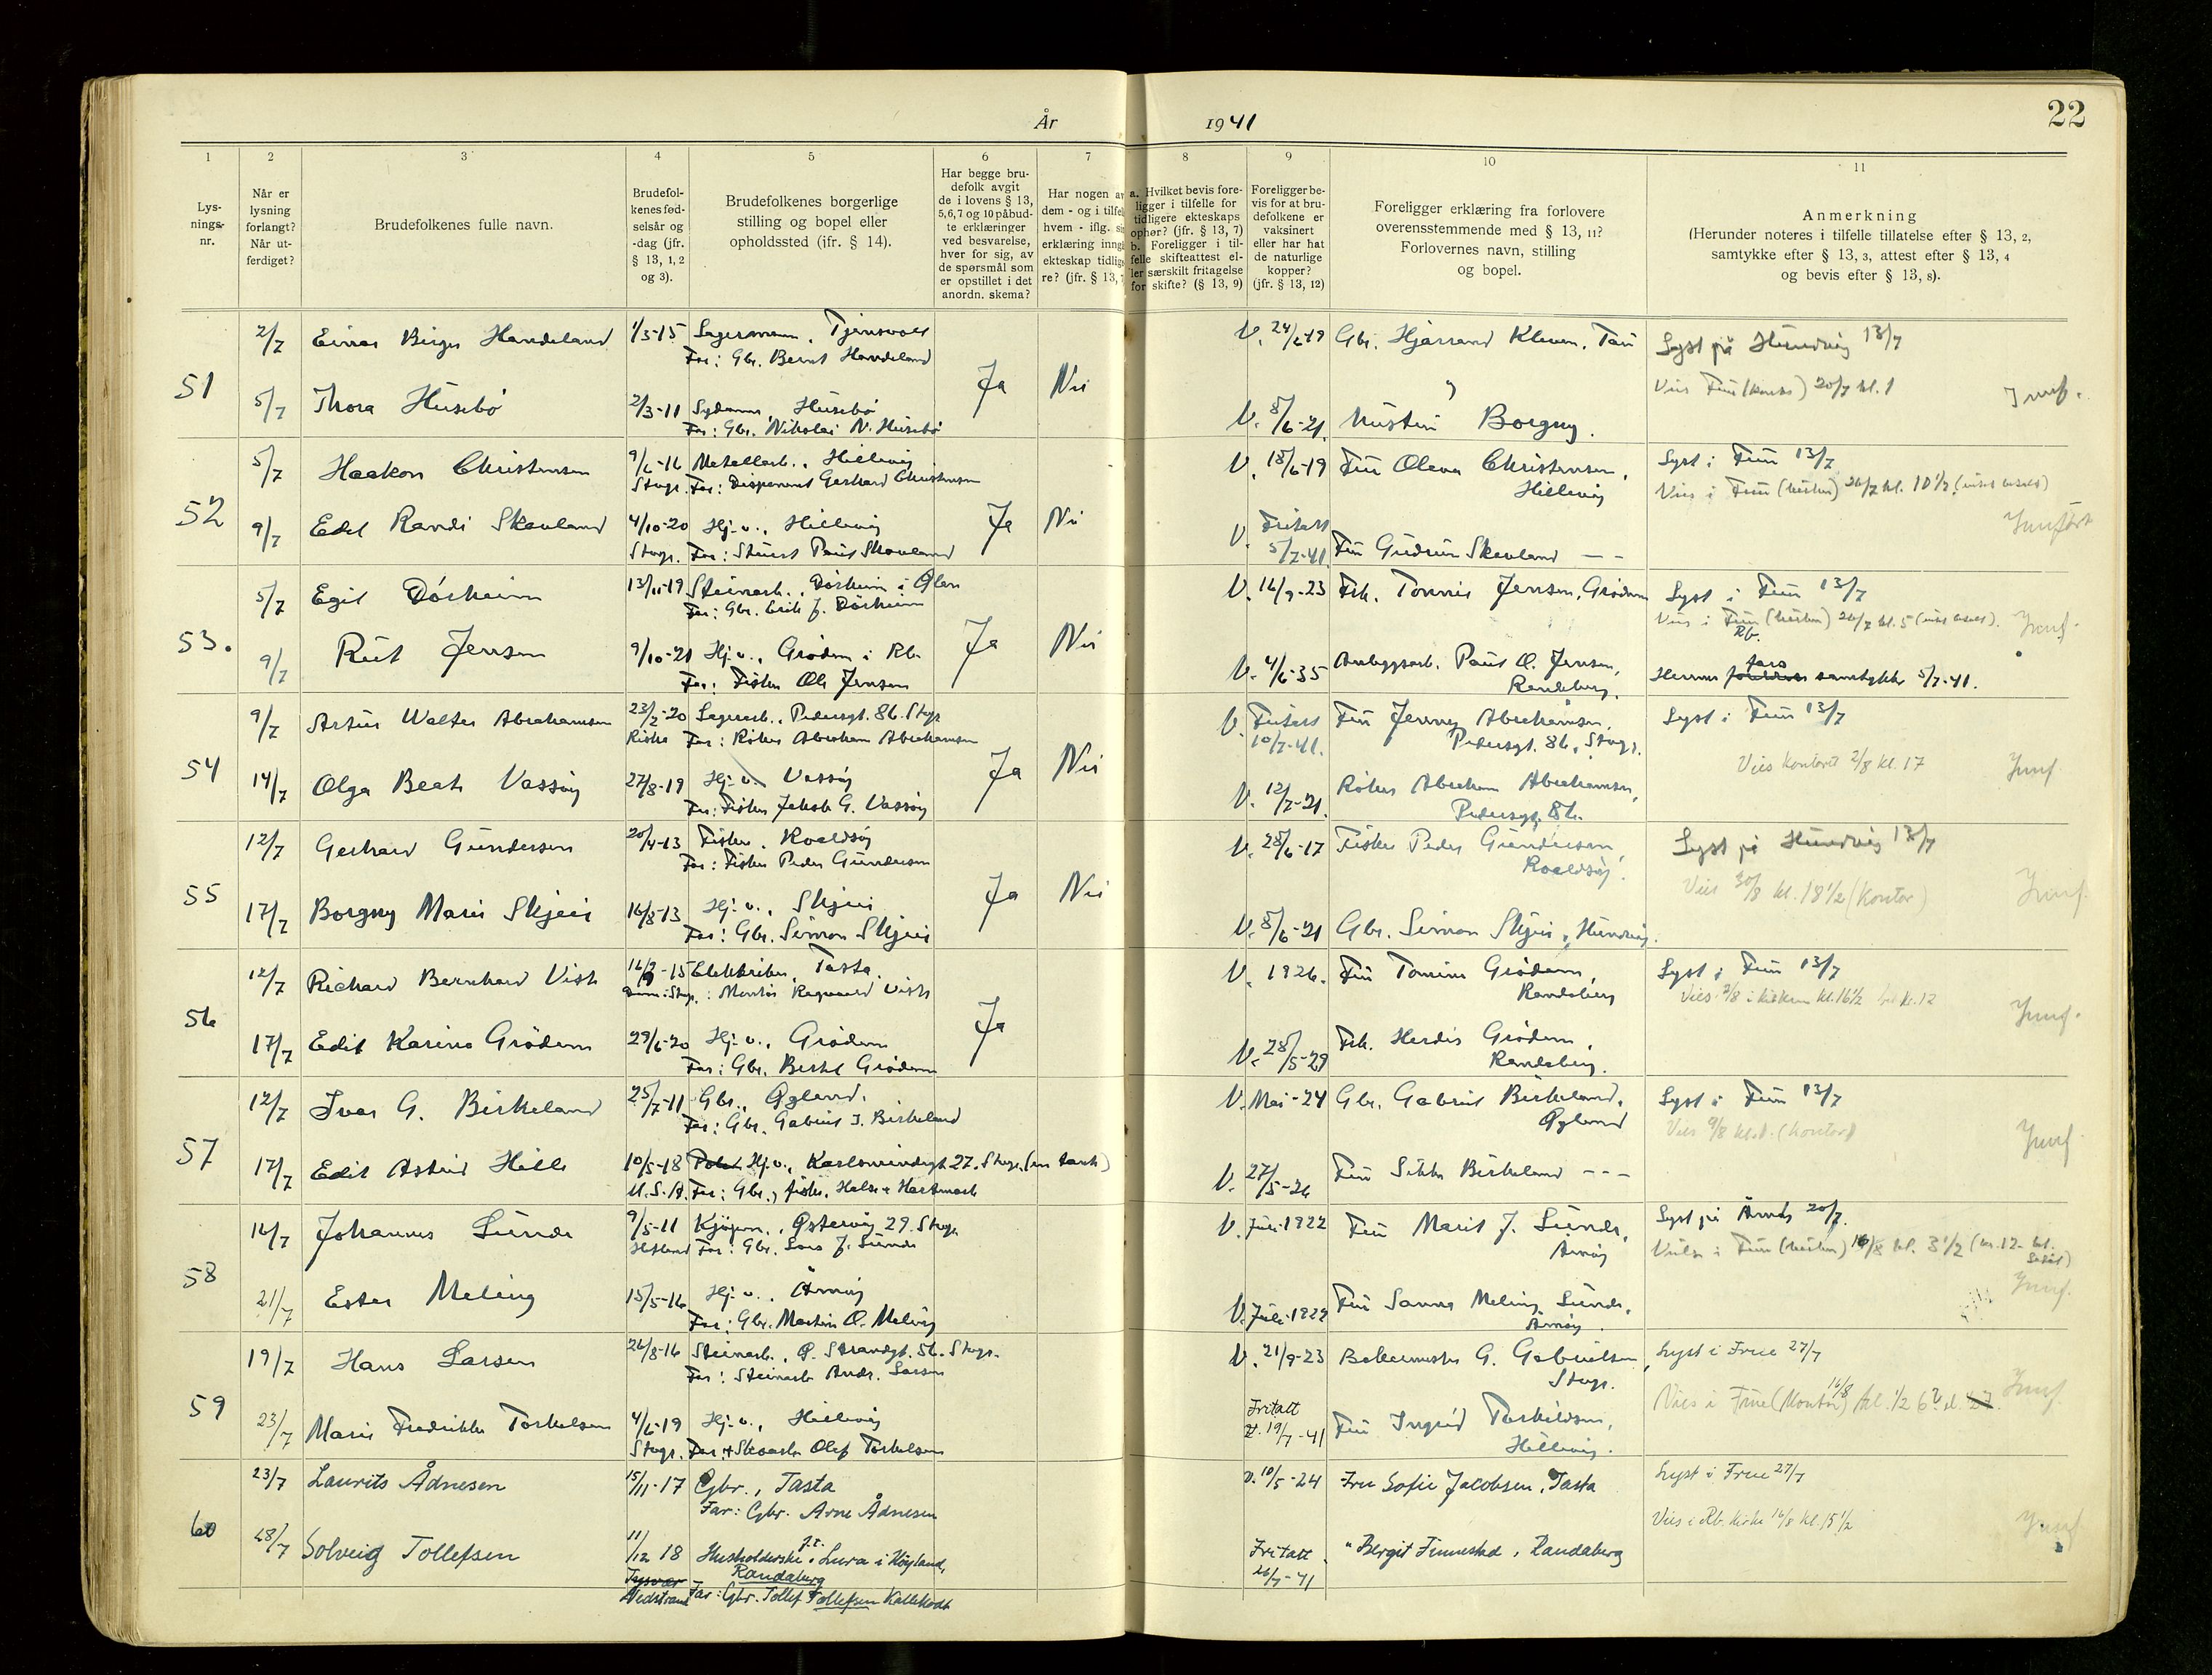 År 1941
22
1
2
3
4
5
6
7
8
9
10
11
Lys-
nings-
nr.
Når er
lysning
forlangt?
Når ut-
ferdiget?
Brudefolkenes fulle navn.
Brudefol-
kenes fød-
selsår og
-dag (jfr.
§ 13, 1, 2
og 3).
Brudefolkenes borgerlige
stilling og bopel eller
opholdssted (ifr. § 14).
Har begge bru-
defolk avgit
de i lovens § 13,
5,6,7 og 10 påbud-
te erklæringer
ved besvarelse,
hver for sig, av
de spørsmål som
er opstillet i det
anordn. skema?
Har nogen av
dem - og i tilfel
hvem - iflg. sin
erklæring inngå
ekteskap tidlige
re? (jfr. § 13,
a. Hvilket bevis fore-
ligger i tilfelle for
tidligere ekteskaps
ophør? (jfr. § 13, 7)
b. Foreligger i til-
felle skifteattest el-
ler særskilt fritagelse
for skifte? (§ 13, 9)
Foreligger be-
vis for at bru-
defolkene er
vaksinert
eller har hat
de naturlige
kopper?
(jfr. § 13, 12)
Foreligger erklæring fra forlovere
overensstemmende med § 13, 11?
Forlovernes navn, stilling
og bopel.
Anmerkning
(Herunder noteres i tilfelle tillatelse efter § 13, 2,
samtykke efter § 13, 3, attest efter § 13, 4
og bevis efter § 13, 8).
51
2/7 Einar Birger Handeland 1/3-15 Lagermann, Tjensvoll
Far: Gbr. Bernt Handeland
Ja Nei
V. Gbr. Hjarrand Kleven, Tau
Lyst på Hundvåg 13/7
20/7 kl. 1
5/7 Thora Husebø 2/3-11 Husebø
Far: Gbr. Nikolai N. Husebø
V. 8/6-21. Borgny
Jmf.
52
5/7 Haakon Christensen Metallarb., Hillevåg
Stvgr. Far: Disponent Gerhard Christensen
Ja Nei
V. 18/6-19 Fru Olena Christensen,
Hillevåg
Lyst i Frue 13/7
9/7 Edel Randi Skavland 4/10-20 Hj. v., Hillevåg
Stvgr. Far: Stuert Paul Skavland
V. Fritatt
5/7-41. Fru Gudrun Skavland — —
Jmført
53.
5/7 Egil Dørheim 13/11-19 Steinarb., Dørheim i
Far: Gbr. Erik J. Dørheim
Ja Nei
V. 16/9-23 Frk. Tonnie Jensen, Grødem
Lyst i Frue 13/7
9/7 Rut Jensen 9/10-21 Hj. v., Grødem i Rb.
Far: Fisker Ole Jensen
V. 4/6-35 Anleggsarb. Paul O. Jensen,
Randaberg.
Hennes fars samtykke 5/7-41.
Jmf.
54
9/7 Artur Walter Abrahamsen 23/2-20 Lagerarb., Pedersgt. 86. Stvgr
Riska Far: Abraham Abrahamsen
Ja Nei
V. Fritatt
10/7-41. Fru Jenny Abrahamsen,
Pedersgt. 86, Stvgr.
Lyst i Frue 13/7
Vies kontoret 2/8 kl. 17
14/7 Olga Beate Vassøy 27/8-19 Hj. v. Vassøy
Far: Fisker Jakob G. Vassøy
V. 12/7-21. Abraham Abrahamsen,
Pedersgt. 86.
Jmf.
55
12/7 Gerhard Gundersen 20/4-13 Fisker, Roaldsøy
Far: Fisker Peder Gundersen
Ja Nei
V. 28/6-17 Fisker Peder Gundersen,
Roaldsøy.
Lyst på Hundvåg 13/7
Vies 30/8 kl. 18 1/2 (Kontor)
17/7 Borgny Marie Skjeie 16/8-13 Hj. v., Skjeie
Far: Gbr. Simon Skjeie
V. 8/6-21 Gbr. Simon Skjeie, Hundvåg.
Jmf.
56
12/7 Richard Bernhard Viste Elektriker, Tasta.
: Montør Ragnvald Viste
Ja
V. 1926. Fru Tomine Grødem,
Randaberg
Lyst i Frue 13/7
Vies 2/8 i kirken kl. 16 1/2
17/7 Edit Karine Grødem 29/6-20 Hj. v., Grødem
Far: Gbr. Bertel Grødem
V. 28/5-29 Frk. Herdis Grødem,
Randaberg.
Jmf.
57
12/7 Ivar G. Birkeland 25/7-11 Gbr., Øgland.
Far: Gbr. Gabriel I. Birkeland
V. Mai-24 Gbr. Gabriel Birkeland,
Øgland
Lyst i Frue 13/7
Vies 9/8 (kontor)
17/7 Edit Astrid Hille 10/5-18 Hj. v., Karlsminnegt 27. Stvgr.
U.S.A. Far: Gbr.,
V. 27/5-26 Fru Sikke Birkeland — — —
Jmf.
58
16/7 Johannes Lunde 9/5-11 Østervåg 29. Stvgr.
Far: Gbr. Lars J. Lunde
V. Juli-1922 Fru Marit J. Lunde,
Åmøy
20/7
21/7 Ester Meling 15/5-16 Hj. v., Åmøy
Far: Gbr. Martin O. Meling
V. Juli-1922 Fru Sanna Meling Lunde,
Åmøy.
Jmf.
59
19/7 Hans Larsen 26/8-16 Steinarb., Ø. Strandgt. 56. Stvgr.
Far: Steinarb. Andr. Larsen
V. 21/9-23 Bakermester G. Gabrielsen
Stvgr.
Lyst i Frue 27/7
23/7 Marie Fredrikke Torkelsen 4/6-19 Hj. v., Hillevåg
Stvgr. Far † Skoarb. Olaf Torkelsen
Fritatt
19/7-41 Fru Ingrid Torkildsen,
Hillevåg.
Jmf.
60
23/7 Laurits Ådnesen 15/11-17 Gbr., Tasta
Far: Gbr. Arne Ådnesen
v. 10/5-24 Fru Sofie Jacobsen, Tasta
Lyst i Frue 27/7
Vies i Rb. kirke 16/8 kl. 15 1/2
28/7 Solveig Tollefsen 11/12 18 Husholderske, Lura i Høyland,
Randaberg
Nedstrand Far: Gbr. Tollef Tollefsen Kallekodt
Fritatt
26/7-41 " Bergit Finnestad, Randaberg